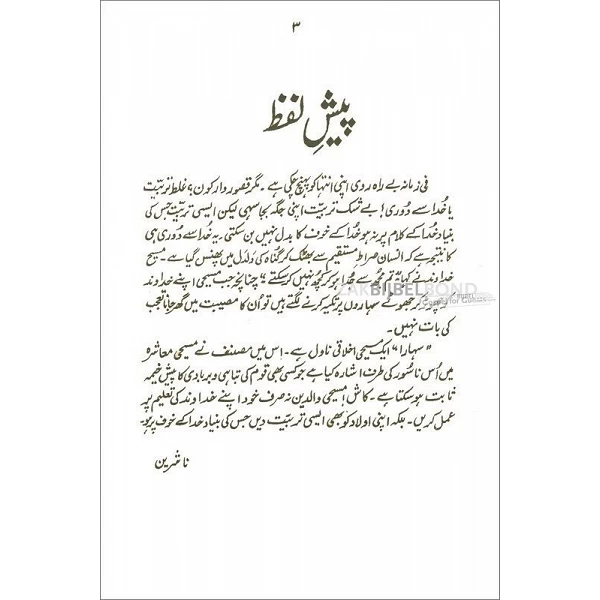 ۳
پیشِ لفظ
فی زمانہ بے راہ روی اپنی انتہا کو پہنچ چکی ہے۔ مگر قصور وار کون؟ غلط تربیّت
یا خُدا سے دُوری! بے شک تربیّت اپنی جگہ بجا سہی لیکن ایسی تربیّت جس کی
بنیاد خُدا کے کلام پر نہ ہو خُدا کے خوف کا بدل نہیں بن سکتی۔ یہ خُدا سے دُوری ہی
کا نتیجہ ہے کہ انسان صراطِ مستقیم سے بھٹک کر گناہ کی دَلدل میں پھنس گیا ہے۔ مسیح
خداوند نے کہا "تم مجھ سے جُدا ہو کر کچھ نہیں کر سکتے" چنانچہ جب مسیحی اپنے خداوند
کو چھوڑ کر جھوٹے سہاروں پر تکیہ کرنے لگتے ہیں تو اُن کا مصیبت میں گھر جانا تعجب
کی بات نہیں۔
"سہارا" ایک مسیحی اخلاقی ناول ہے۔ اِس میں مصنف نے مسیحی معاشرہ
میں اُس ناسُور کی طرف اشارہ کیا ہے جو کسی بھی قوم کی تباہی و بربادی کا پیش خیمہ
ثابت ہو سکتا ہے۔ کاش! مسیحی والدین نہ صرف خود اپنے خداوند کی تعلیم پر
عمل کریں۔ بلکہ اپنی اولاد کو بھی ایسی تربیّت دیں جس کی بنیاد خدا کے خوف پر ہو۔
ناشرین
BIJBELBOND